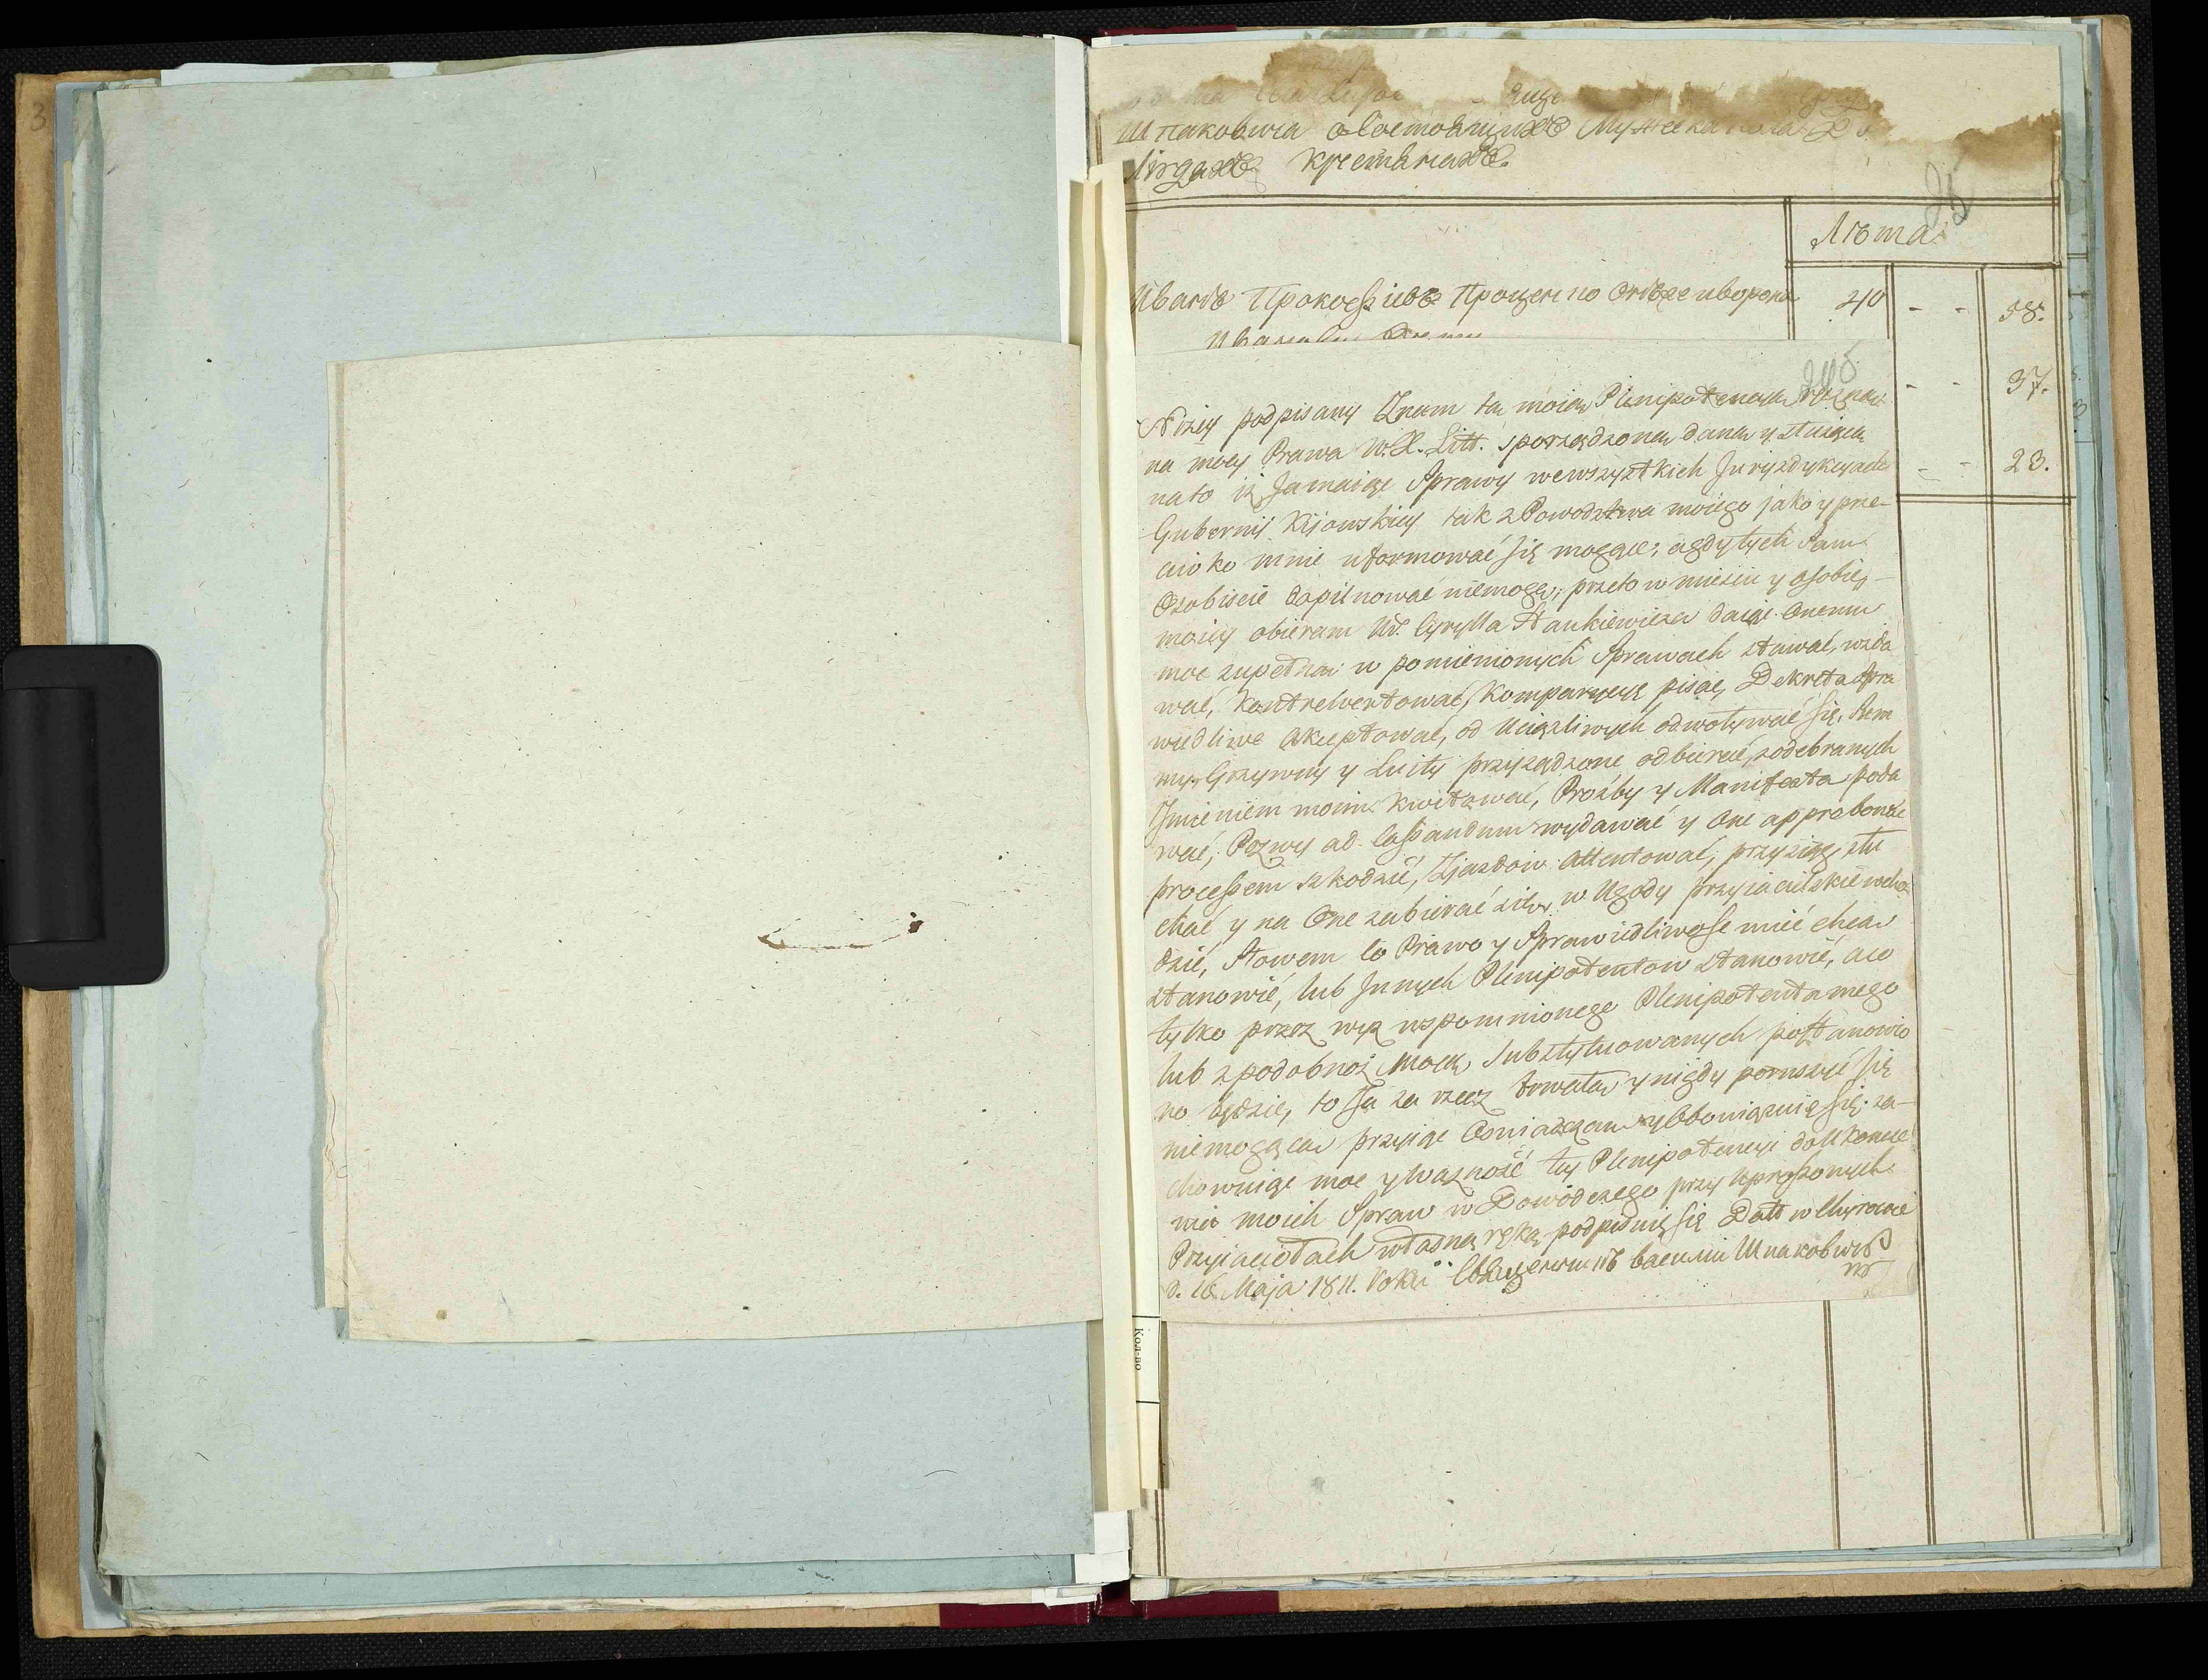 3
Шпаковича состоящихъ Мужеска пола
Людяхъ крестьянахъ.
Лѣта
Иванъ Прокофіевъ Проценко онъже иворона 40 - - 58.
- - 37.
- - 23.
Niżey podpisany Znam tą moią Plenipotencyą
na mocy Prawa W. X. Litt. sporządzoną daną y służącą
na to iż Ja maiąc Sprawy wewszystkich Juryzdykcyach
Gubernij Kijowskiey tak z Powodztwa moiego jako y prze-
ciwko mnie uformować się mogące, a gdy tych Sam
Osobiscie dopilnować niemogę, przeto w mieiscu y osobie
moiey obieram W. Cyrylla Stankiewicza daiąc Onemu
moc zupełną w pomienionych Sprawach stawać, wzda
wać, Kontrelwentować, Komparycye pisać, Dekreta Spra
wiedliwe akceptować, od Uciążliwych odwoływać się, Sum
my, Grzywny y Luity przysądzone odbierać, zodebranych
Jmieniem moim Kwitować, Prozby y Manifesta poda
wać, Pozwy ad Cassandum wydawać y One approbować
processem szkodzić, Zjazdow attentować, przysiąg słu
chać y na One zabierać się, w Ugody przyiacielskie wcho
dzić, Słowem co Prawo y Sprawiedliwość mieć chcą
stanowić, lub Jnnych Plenipotentow stanowić, a co
tylko przez wyż wspomnionego Plenipotenta mego
lub z podobnąż mocą Substytuowanych postanowio
no będzie, to Ja za rzecz trwałą y nigdy poruszyć się
niemogącą przyiąć Oswiadczam y Obowiązuię się. za-
chowuiąc moc y Ważność tey Plenipotencyi do Ukończe
nia moich Spraw w Dowód czego przy Uproszonych
Przyiaciołach własną ręką podpisuię się Datt w
d. 16. Maja 1811. Roku Священникъ василій Шпаковичъ
Кол-во